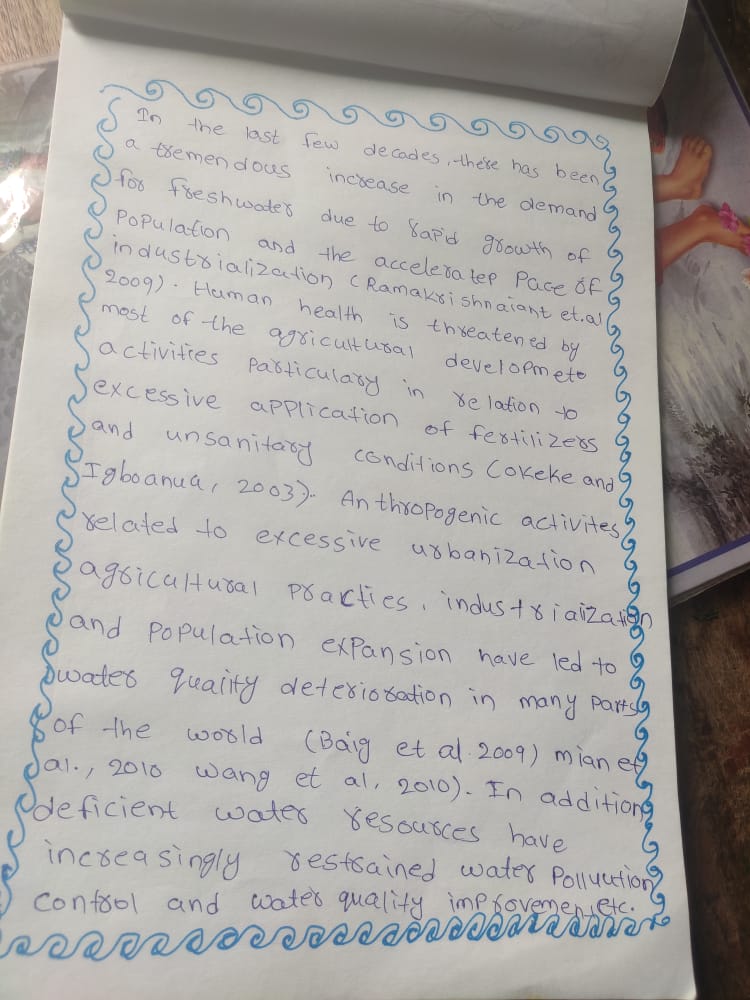 In the last few decades, there has been
a tremendous increase in the demand
for freshwater due to rapid growth of
population and the acceleratep Pace of
industrialization (Ramakrishnaiant et.al
2009). Human health is threatened by
most of the agricultural developmete
activities particulary in relation to
excessive application of fertilizers
and unsanitary conditions (okeke and
Igboanua, 2003). Anthropogenic activites
related to excessive urbanization
agricultural practies, industriaization
and population expansion have led to
water quaity deterioration in many parts
of the world (Baig et al. 2009) mian et
al., 2010 wang et al, 2010). In addition,
deficient water resources have
increasingly restrained water Polluution
control and water quality improvemen,etc.